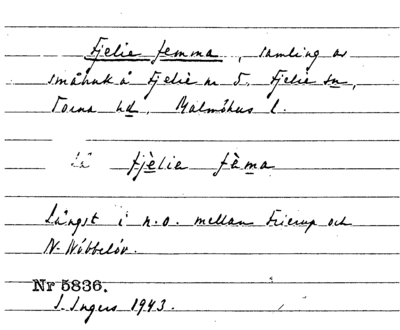 Fjelie femma, samling av
småhus å Fjelie nr 5. Fjelie sn,
Torna hd, Malmöhus l.
Så fjèlia fèma
Längst i n.o. mellan Trierup och
N. Nöbbelöv.
Nr 5836.
I. Ingers 1943.